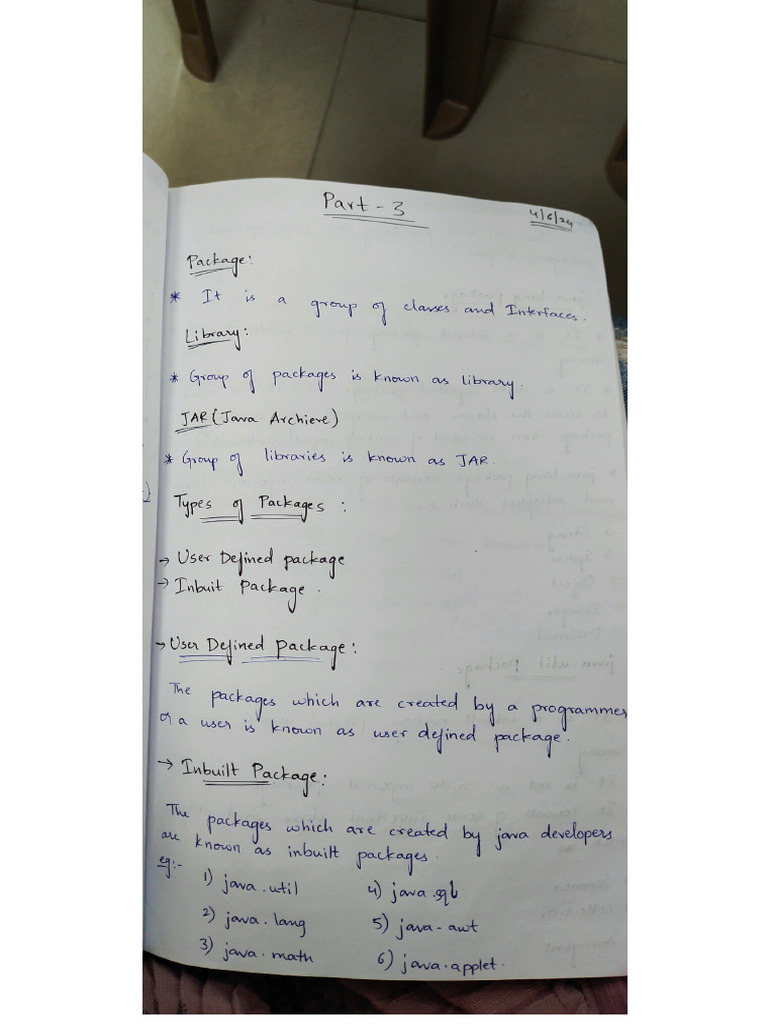 Part - 3
4/6/24
Package:
* It is a group of classes and Interfaces.
Library:
* Group of packages is known as library.
JAR (Java Archieve)
* Group of libraries is known as JAR.
Types of Packages :
→ User Defined package
→ Inbuit Package .
→ User Defined Package:
The packages which are created by a programmer
or a user is known as user defined package.
→ Inbuilt Package:
The packages which are created by java developers
are known as inbuilt packages.
eg:-
1) java.util 4) java.sql
2) java.lang 5) java-awt
3) java.math 6) java.applet.